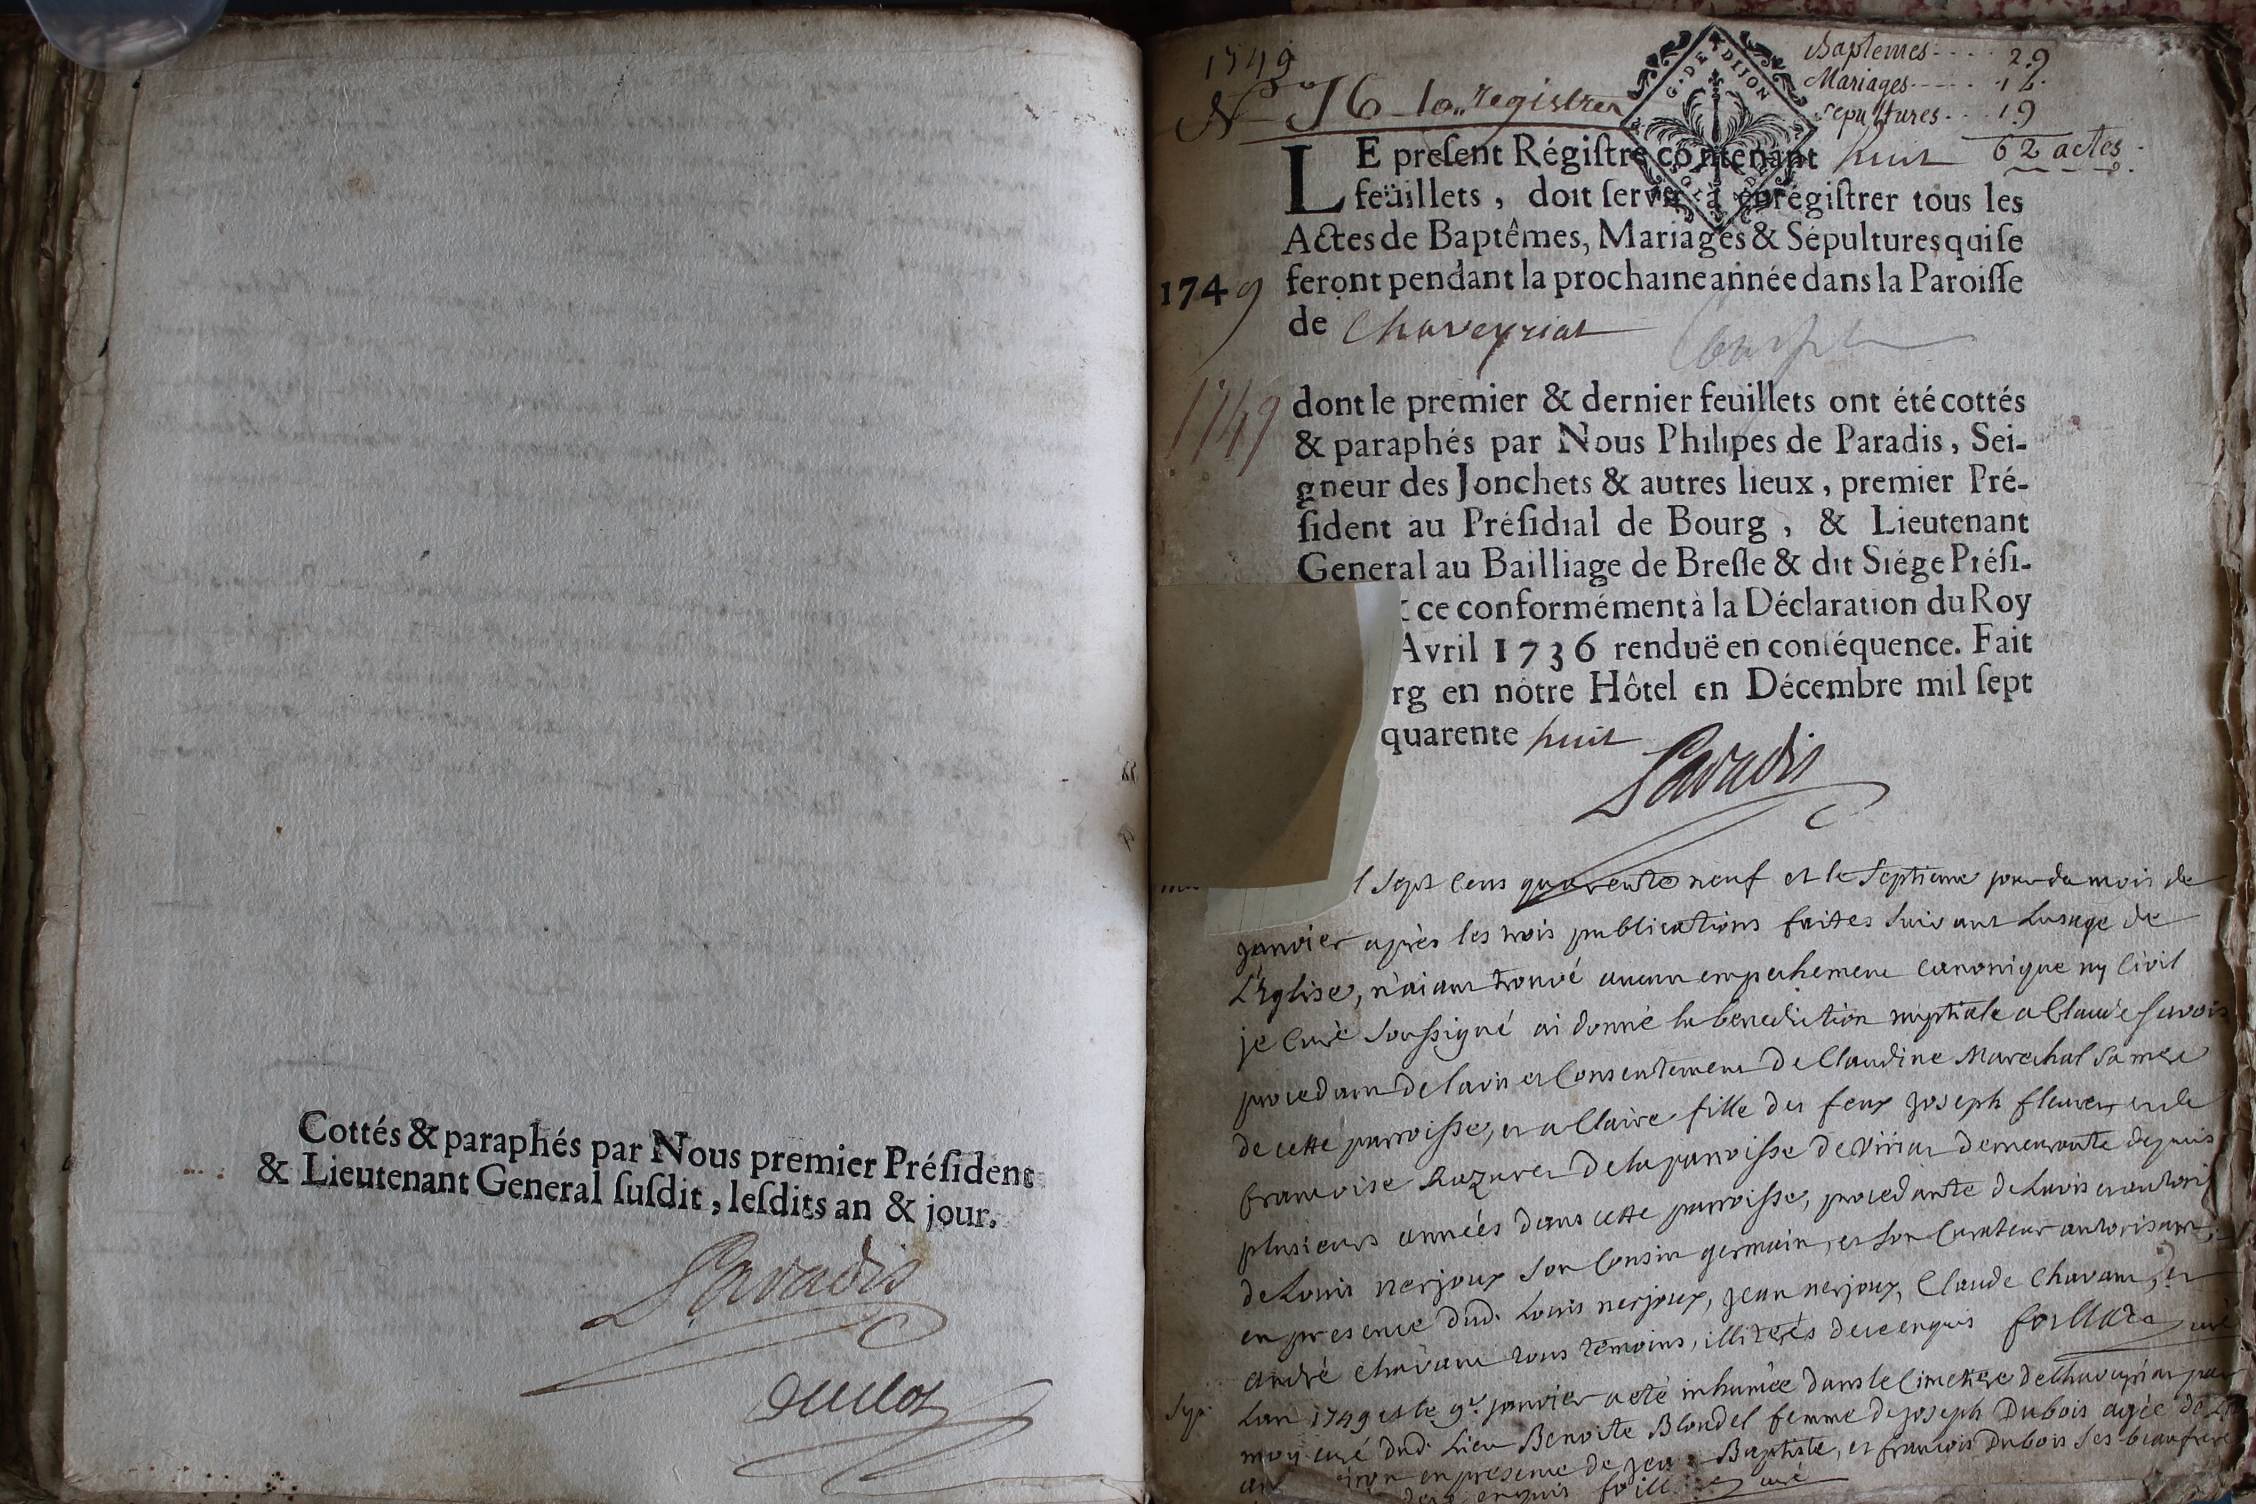 Cottés & paraphés par Nous premier Préſident
& Lieutenant General ſuſdit, leſdits an & jour.
Paradis
1749
No 76 10 registres
G. DE DIJON
Baptemes 29
Mariages 14
Sepultures 19
62 actes
LE preſent Régiſtre contenant huit
feüillets, doit ſervir à enrégiſtrer tous les
Actes de Baptêmes, Mariages & Sépultures qui ſe
1749 feront pendant la prochaine année dans la Paroiſſe
de Chaveyriat
1749
dont le premier & dernier feüillets ont été cottés
& paraphés par Nous Philipes de Paradis, Sei-
gneur des Jonchets & autres lieux, premier Pré-
ſident au Préſidial de Bourg, & Lieutenant
General au Bailliage de Breſſe & dit Siége Préſi-
ce conformément à la Déclaration du Roy
Avril 1736 renduë en conſéquence. Fait
rg en nôtre Hôtel en Décembre mil ſept
quarente huit
Paradis
l sept cens quarente neuf et le septieme jour du mois de
janvier après les trois publications faites suivant lusage de
L'Eglise, n'aiant trouvé aucun empechement canonique ny civil
je curé soussigné ai donné la benediction nuptiale a Claude savois
procedant de lavis et consentement de Claudine Marechal sa mere
de cette parroisse, et a Claire fille des feux joseph fleuret et de
francoise de la parroisse de Viriat demeurante depuis
plusieurs années dans cette parroisse, procedante de lavis et autorité
de Louis nerjoux son cousin germain, et son curateur autorisant,
en presence dud. Louis nerjoux, jean nerjoux, Claude Chavant, et
andré Chavant tous témoins, illiterés de ce enquis foillard curé
Sep. Lan 1749 et le 9e janvier a eté inhumée dans le Cimetiere de Chaveyriat par
moy curé dud. Lieu Benoite Blondel femme de joseph Dubois agée de
en presence de Baptiste, et francois Dubois ses beaufreres
enquis foill curé